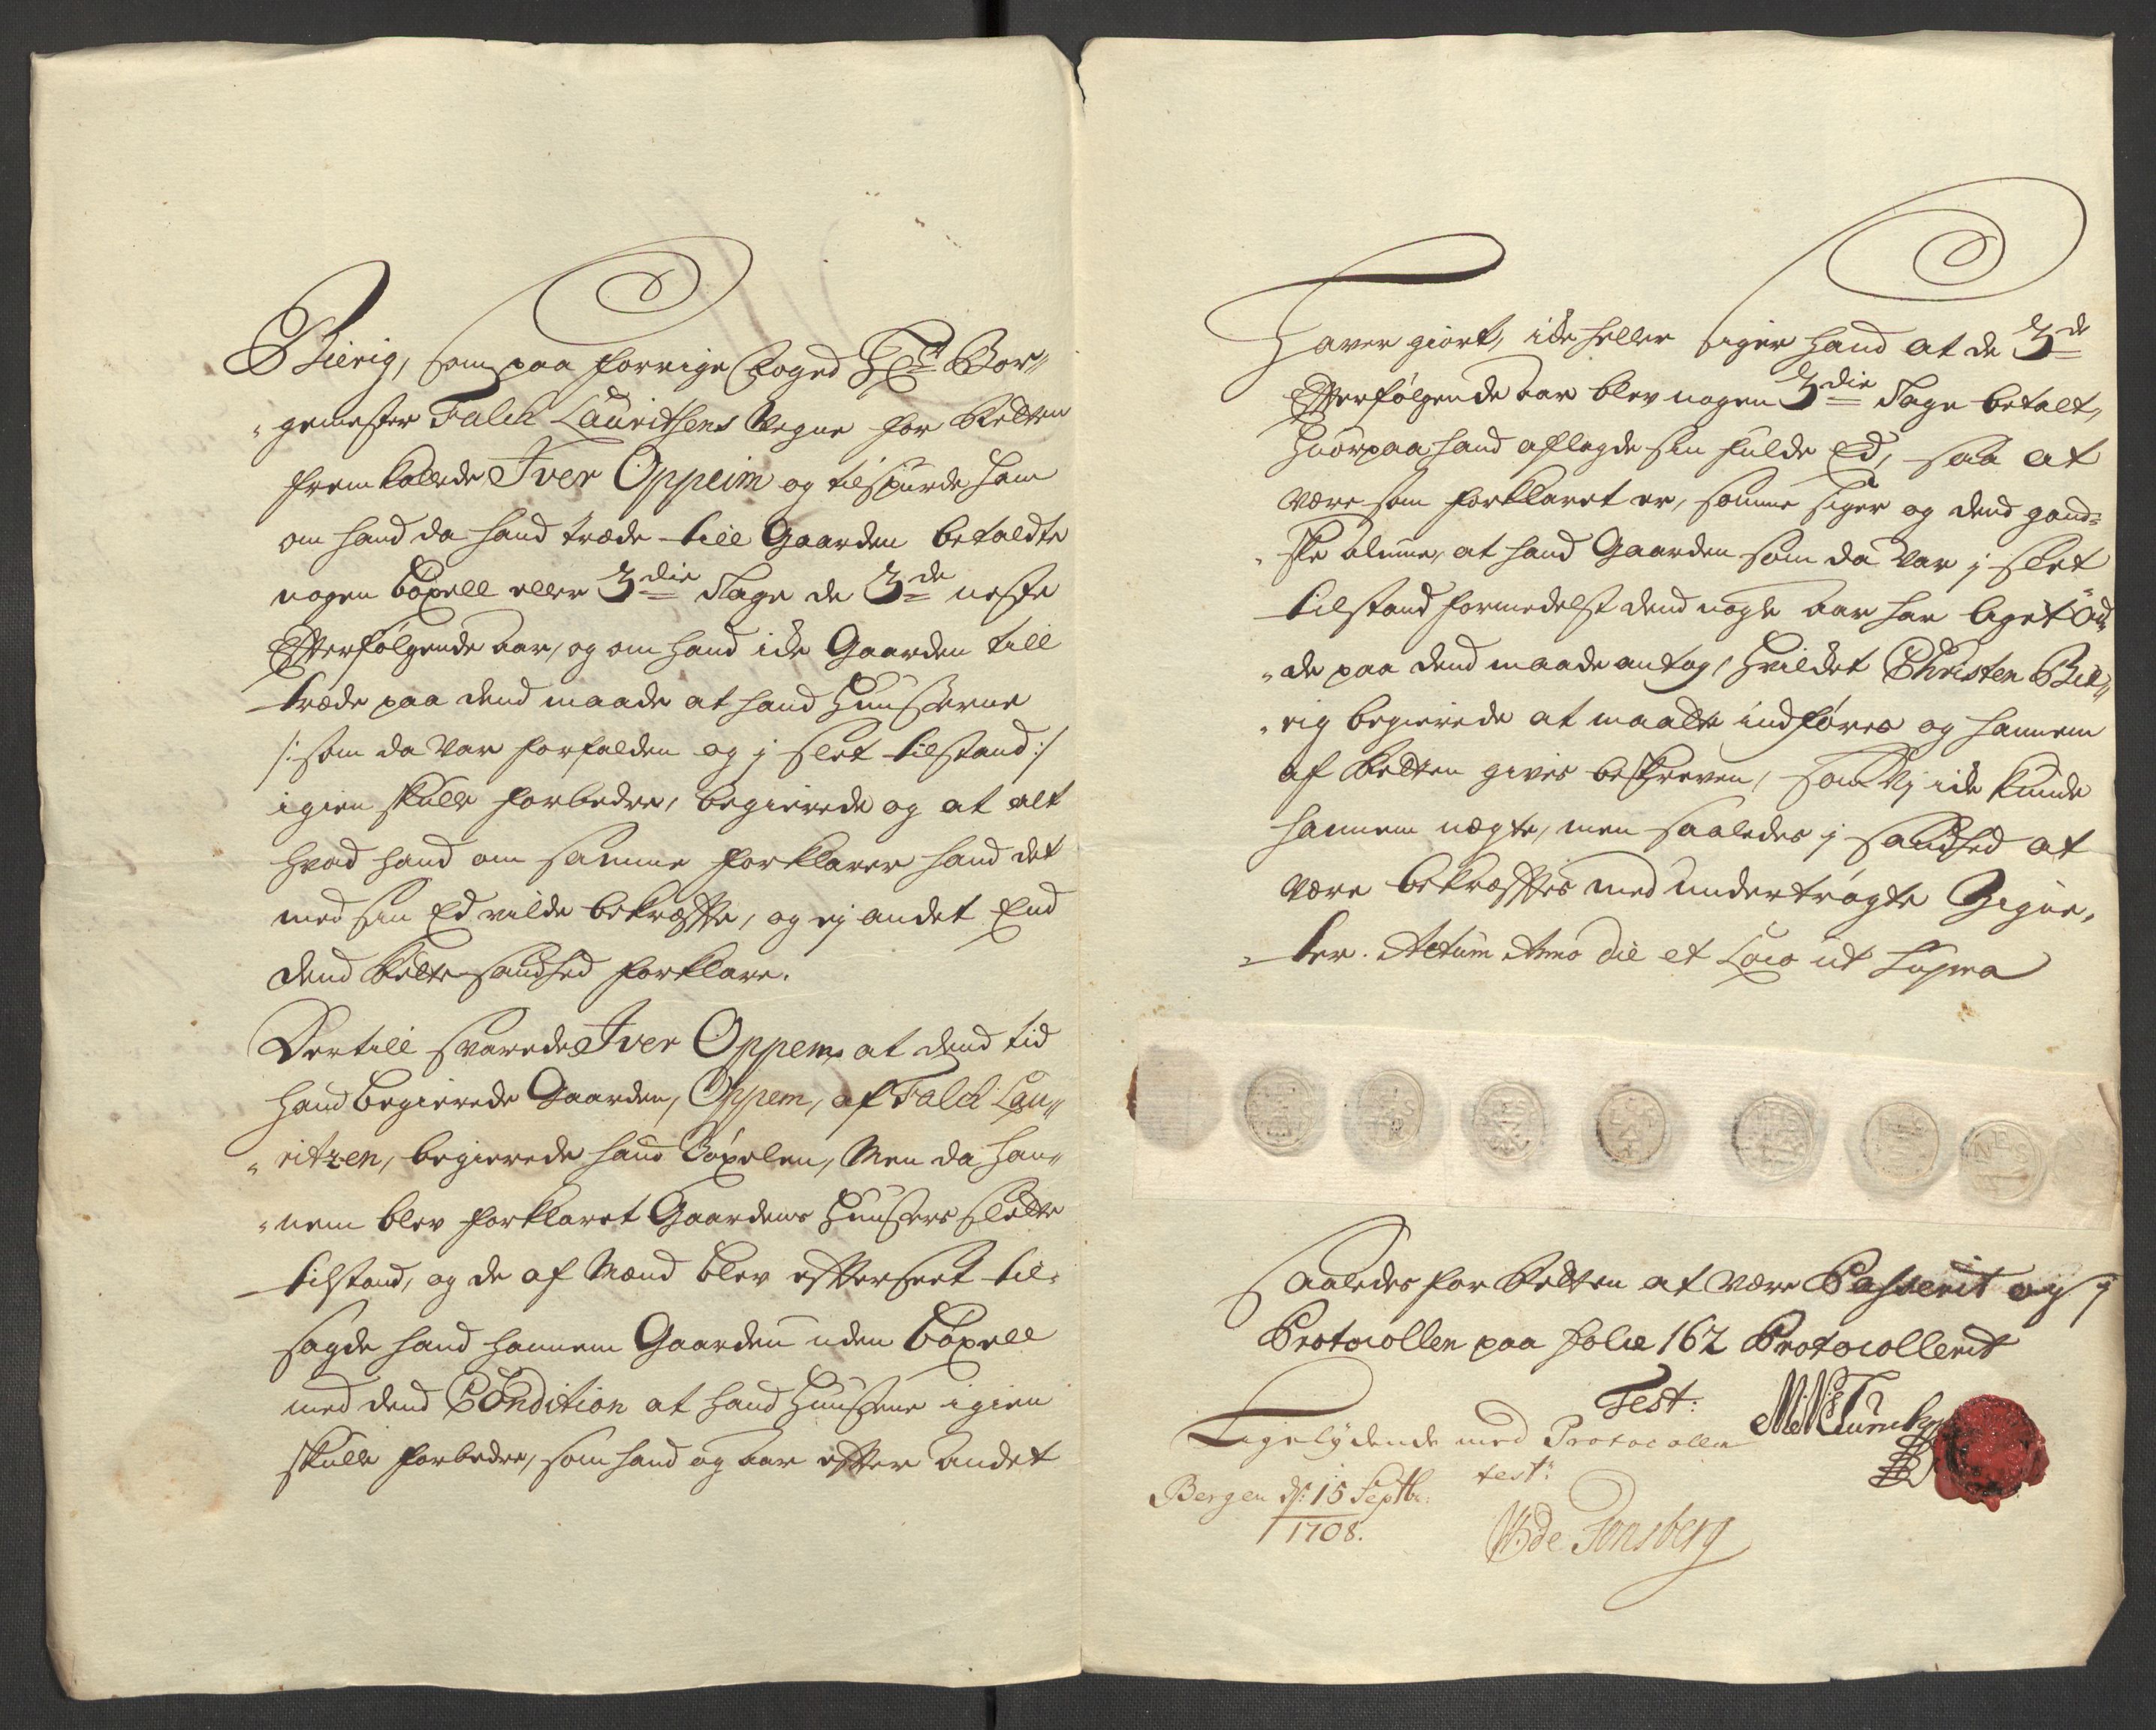 Bierig, som paa forrige Foged Hr Bor„
„gemester Falck Lauritsens Vegne for Retten
fremkallede Iver Oppeim og tilspurde ham
om hand da hand træde till Gaarden betaldte
nogen Böxell eller 3die Tage de 3de neste
Efterfölgende aar, og om hand icke Gaarden till
træde paa dend maade at hand Huusserne
/: som da var forfalden og j slet tilstand :/
igien skulle forbedre, begierede og at alt
hvad hand om samme forklarer hand det
med sin Ed vilde bekræffte, og ej andet End
dend Rette sandhed forklare.
Dertill svarede Iver Oppem, at dend tid
hand begierede Gaarden, Oppem, af Falck Lau„
„ritzen, begierede hand Böxelen, Men da han„
„nem blev forklaret Gaardens Huusers slette
tilstand, og de af Mænd blev efterseet til„
sagde hand hannem Gaarden uden Böxell
med dend Condition at hand Huusene igien
skulle forbedre, som hand og aar effter andet
Haver giort, icke heller siger hand at de 3de
Efterfölgende aar blev nogen 3die Tage betalt,
Huorpaa hand aflagde sin fulde Ed, saa at
være som forklaret er, samme siger og dend gand„
„ske alume, at hand Gaarden som da var j slet
tilstand formedelst dend nogle aar har ligget Öd„
„de paa dend maade antog, hvilcket Christen Bie„
„rig begierede at maatte indföres og hannem
af Retten gives beskreven, som Vj icke kunde
hannem negte, men saaledes j sandhed at
være bekræfftes med undertrögte Zigne„
„ter. Actum Anno die et Loco ut Supra
NES
Saaledes for Retten at være Passerit og j
Protocollen paa folie 162 Protocollerit
Test:
Ligelydende med Protocollen
test:
Bergen d: 15 Septbr:
1708.
de Tonsberg